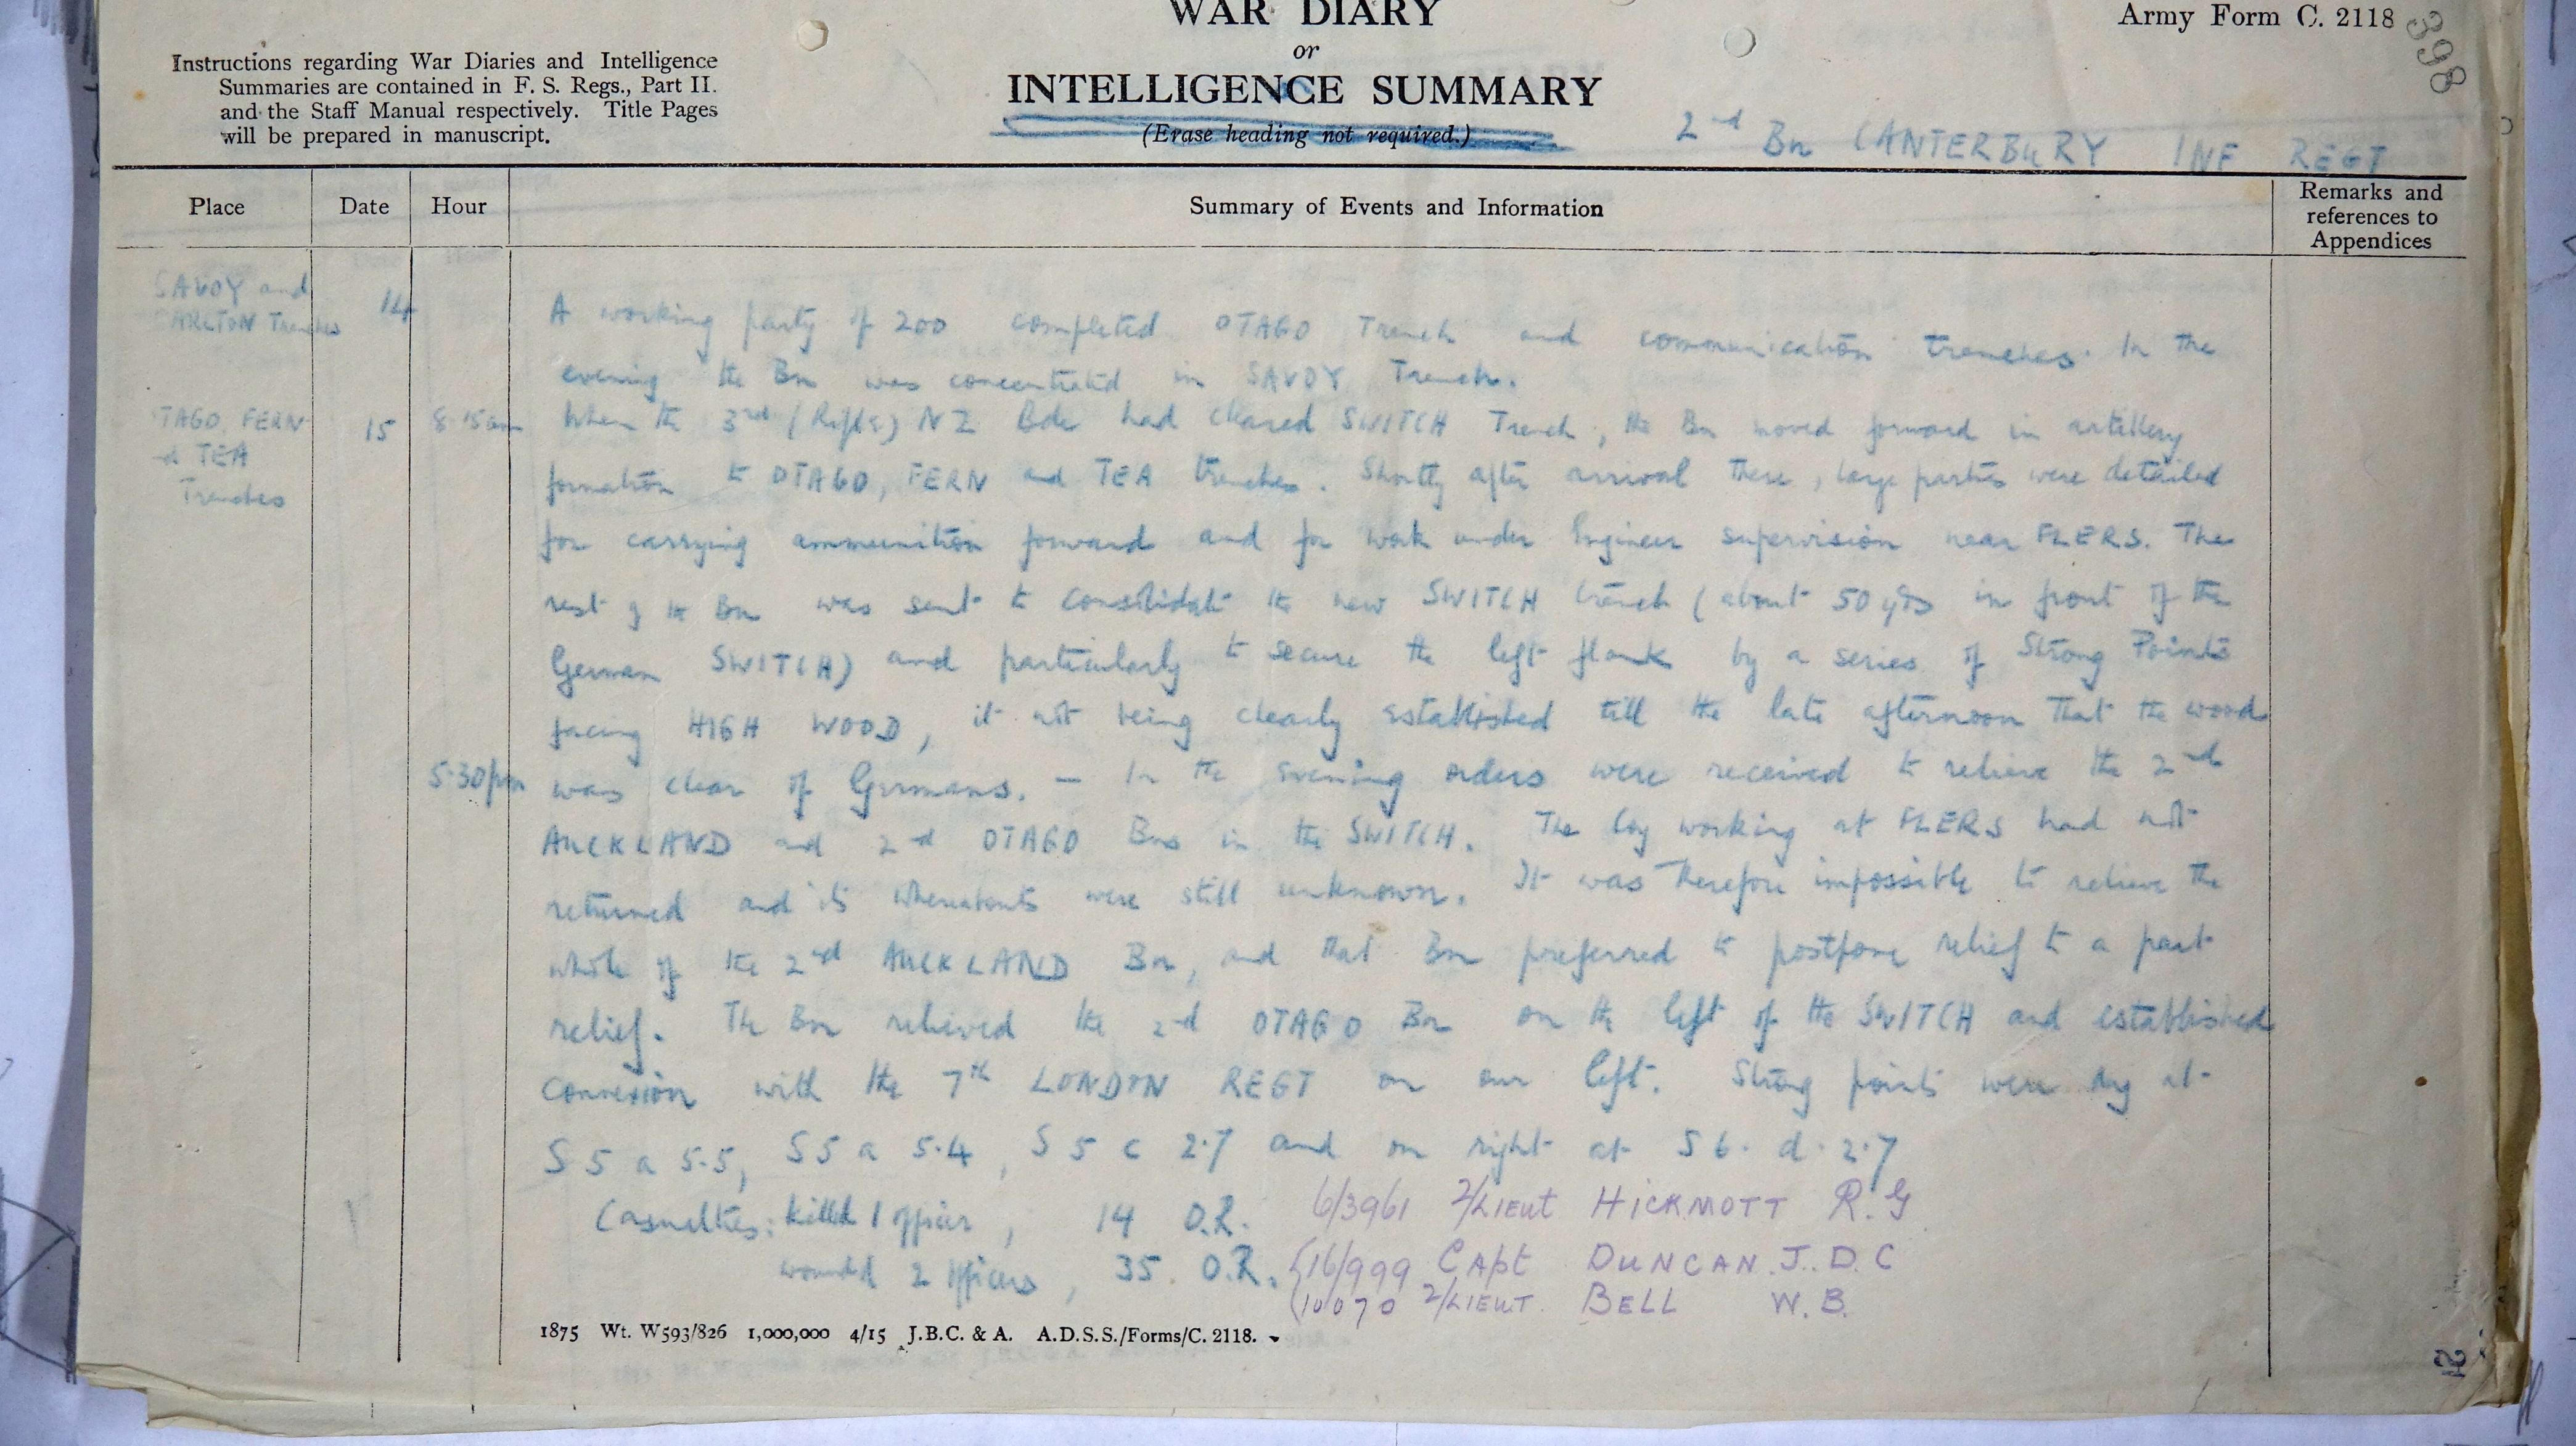 WAR DIARY
or
INTELLIGENCE SUMMARY
(Erase heading not required.)
Army Form C. 2118
398
Instructions regarding War Diaries and Intelligence
Summaries are contained in F. S. Regs., Part II.
and the Staff Manual respectively. Title Pages
will be prepared in manuscript.
2nd Bn CANTERBURY INF REGT
Place Date Hour Summary of Events and Information Remarks and references to Appendices
SAVOY and
ARLTON Trenches
14
A working party of 200 completed OTAGO Trench and communication trenches. In the
evening the Bn was concentrated in SAVOY Trench.
TAGO, FERN
d TEA
Trenches
15 8.15am
When the 3rd (Rifle) NZ Bde had cleared SWITCH Trench, the Bn moved forward in artillery
formation to OTAGO, FERN and TEA trenches. Shortly after arrival there, large parties were detailed
for carrying ammunition forward and for work under Engineer supervision near FLERS. The
rest of the Bn was sent to consolidate the new SWITCH trench (about 50 yds in front of the
German SWITCH) and particularly to secure the left flank by a series of Strong Points
facing HIGH WOOD, it not being clearly established till the late afternoon that the wood
5.30pm was clear of Germans. — In the evening orders were received to relieve the 2nd
AUCKLAND and 2nd OTAGO Bns in the SWITCH. The Coy working at FLERS had not
returned and its whereabouts were still unknown. It was therefore impossible to relieve the
whole of the 2nd AUCKLAND Bn, and that Bn preferred to postpone relief to a part
relief. The Bn relieved the 2nd OTAGO Bn on the left of the SWITCH and established
connexion with the 7th LONDON REGT on our left. Strong points were dug at
S 5 a 5.5, S5 a 5.4, S 5 c 2.7 and on right at S 6. d. 2.7
Casualties: killed 1 officer, 14 O.R. 6/3961 2/LIEUT HICKMOTT R.G
wounded 2 officers, 35. O.R. {16/999 CAPt DUNCAN. J. D. C
(10070 2/LIEUT. BELL W. B.
1875 Wt. W593/826 1,000,000 4/15 J.B.C. & A. A.D.S.S./Forms/C. 2118.